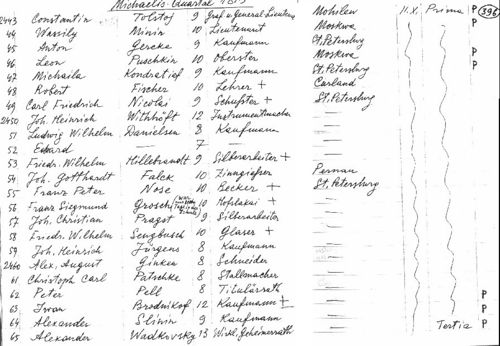 Michaelis-Quartal 1813
2443 Constantin Tolstoj 9 Graf u. General-Lieutens Mohilew 11.X. Prima P 396
44 Wassily Minin 10 Lieutenant Moskwa P
45 Anton Gercke 9 Kaufmann St. Petersburg
46 Leon Puschkin 10 Oberster Moskwa P
47 Michaila Kondratief 9 Kaufmann St. Petersburg P
48 Robert Fischer 10 Lehrer + Curland
49 Carl Friedrich Nicolai 9 Schuster + St. Petersburg
2450 Joh. Heinrich Withhöft 12 Instrumentmacher —
51 Ludwig Wilhelm Danielsen 8 Kaufmann —
52 Eduard — 7 — —
53 Friedr. Wilhelm Hillebrandt 9 Silberarbeiter + —
54 Joh. Gotthardt Falck 10 Zinngiesser Pernau
55 Franz Peter Nose 10 Becker + St. Petersburg
56 Franz Siegmund Grosch 10 Hoflakai + —
57 Joh. Christian Pragst 9 Silberarbeiter —
58 Friedr. Wilhelm Sengbusch 10 Glaser + —
59 Joh. Heinrich Jürgens 8 Kaufmann —
2460 Alex. August Ginken 8 Schneider —
61 Christoph Carl Patschke 8 Stallmacher —
62 Peter Pell 8 Titulärrath — P
63 Iwan Brodnikof 12 Kaufmann + — P
64 Alexander Slinin 9 Kaufmann — Tertia P
65 Alexander Wadkovsky 13 Wirkl. Geheimerrath —